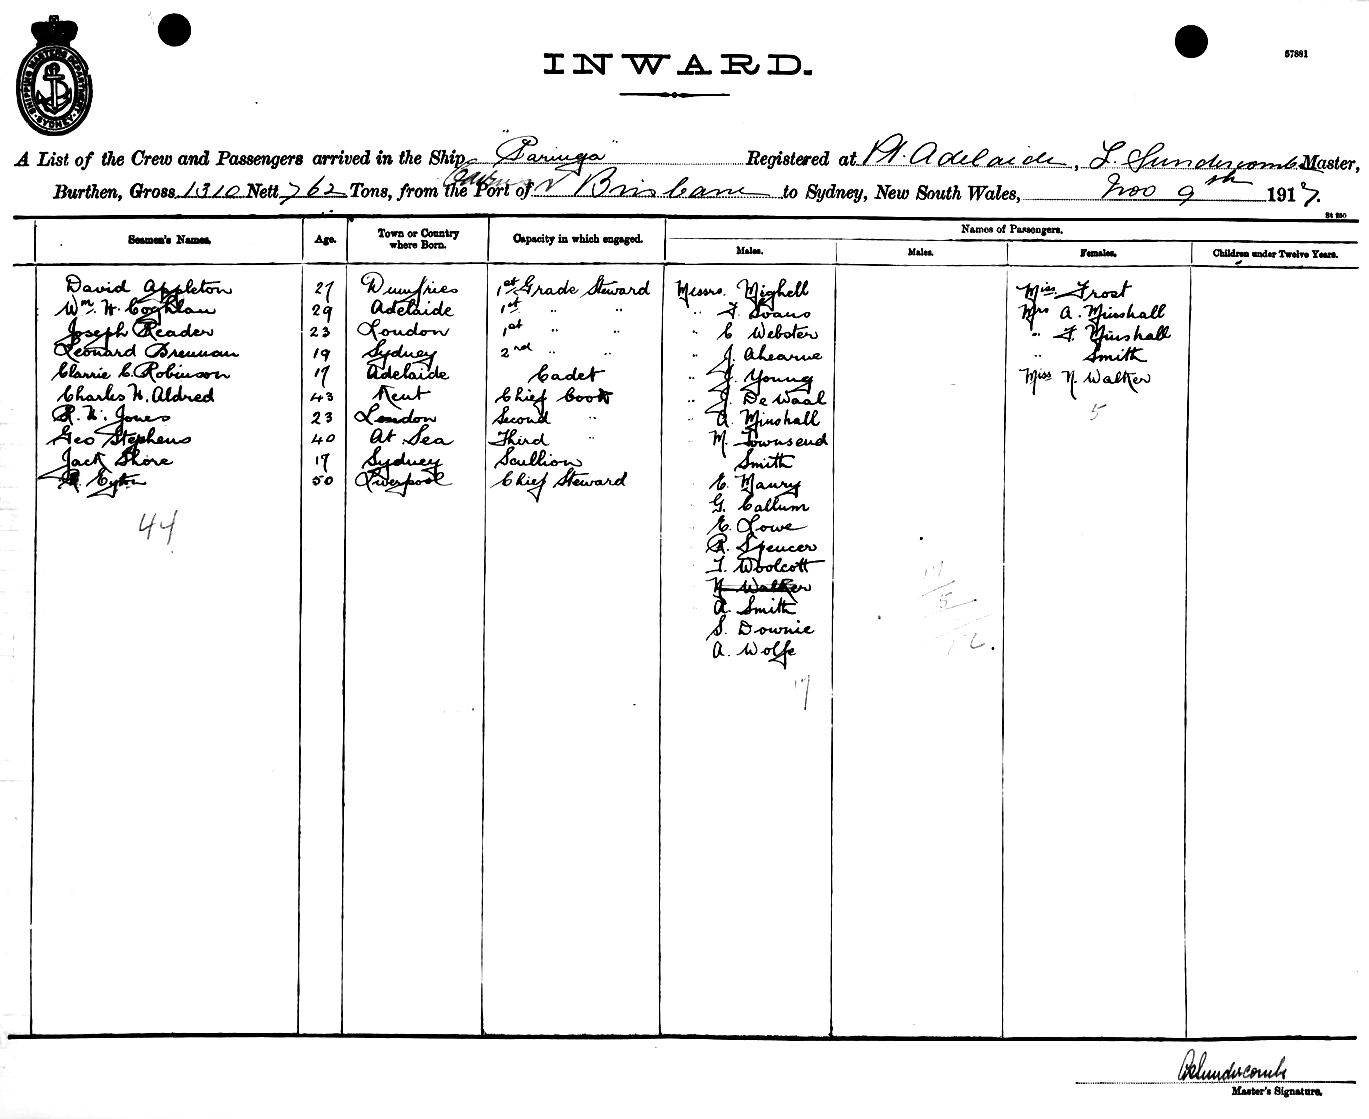 SHIPPING MASTERS DEPARTMENT
SYDNEY
INWARD.
57881
A List of the Crew and Passengers arrived in the Ship "Paringa" Registered at Pt. Adelaide, L. Sunderscombe Master,
Burthen, Gross 1310 Nett 762 Tons, from the Port of Brisbane to Sydney, New South Wales, Nov 9th 1917.
Seamen's Names. Age. Town or Country where Born. Capacity in which engaged. Names of Passengers.
Males. Males. Females. Children under Twelve Years.
David Appleton 27 Dumfries 1st Grade Steward Messrs. Mighell Miss Frost
Wm. H. Coghlan 29 Adelaide 1st " " " F. Evans Mrs A. Minshall
Joseph Reader 23 London 1st " " C Webster " F. Minshall
Leonard Brennan 19 Sydney 2nd " " " J. Ahearne " Smith
Clarrie C. Robinson 17 Adelaide Cadet " J. Young Miss N. Walker
Charles H. Aldred 43 Kent Chief Cook " J. De Waal
R. H. Jones 23 London Second " " A. Minshall 5
Geo Stephens 40 At Sea Third " M. Townsend
Jack Shore 17 Sydney Scullion Smith
R. Eyton 50 Liverpool Chief Steward E. Maury
G. Callum
44 E. Lowe
R. Spencer
T. Woolcott
N. Walker
A. Smith
S. Downie
A. Wolfe
17
17
5
Sunderscombe
Master's Signature.